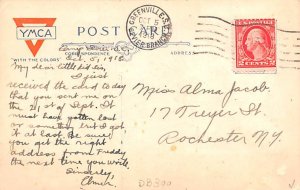 YMCA
"WITH THE COLORS"
POST CARD
CORRESPONDENCE
ADDRESS
GREENVILLE, S.C.
OCT 5
Oct. 5, 1918.
My dear little
I just
received the card to-day
that you sent me on
the 21st of Sept. It
must have gotten lost
or something but I got
it at last. Be sure
you get the right
address from Freddy
the next time you write
Sincerely,
Elmer.
Miss Alma Jacob.
17 Treyer St.
Rochester N.Y.
2 CENTS 2
DB300